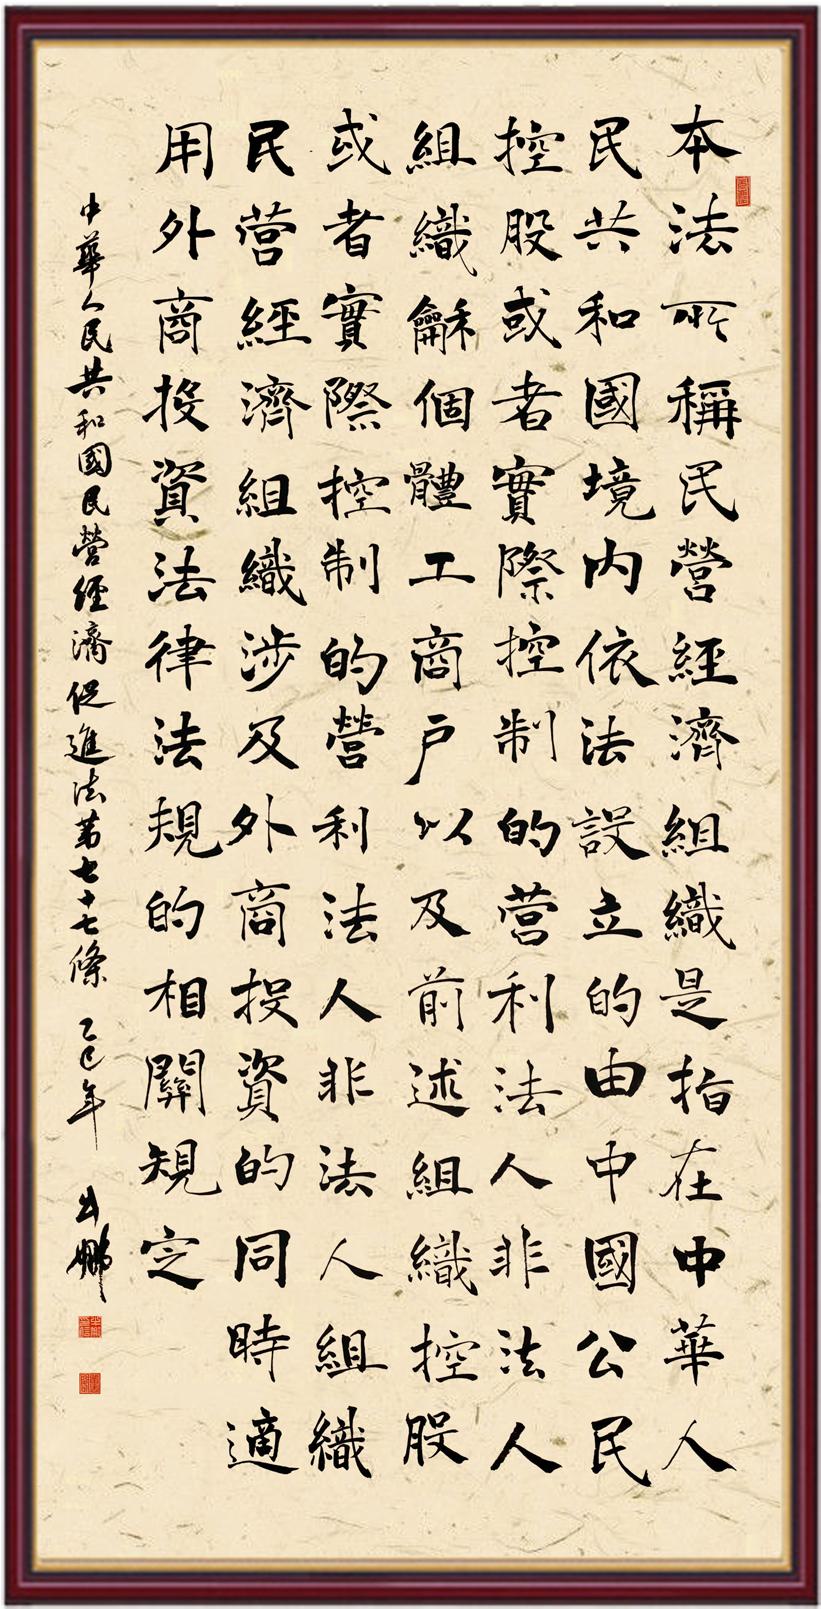 本法所稱民營經濟組織是指在中華人
民共和國境内依法設立的由中國公民
控股或者實際控制的营利法人非法人
組織龢個體工商户以及前述組織控股
或者實際控制的營利法人非法人組織
民营經濟組織涉及外商投資的同時適
用外商投資法律法規的相關規定
中華人民共和國民營經濟促進法第七十七條 乙巳年 鵬